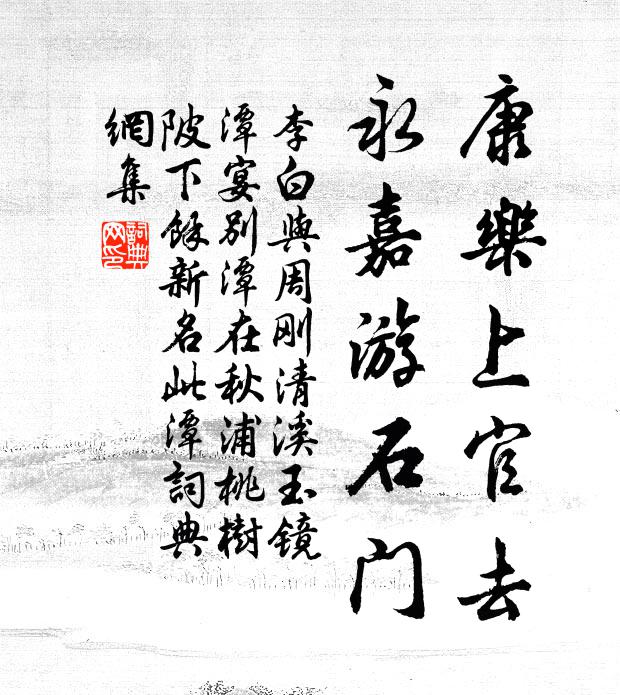 康樂上官去
永嘉游石門
李白與周刚清溪玉镜
潭宴别潭在秋浦桃樹
陂下餘新名此潭詞典
網集
詞典
网印